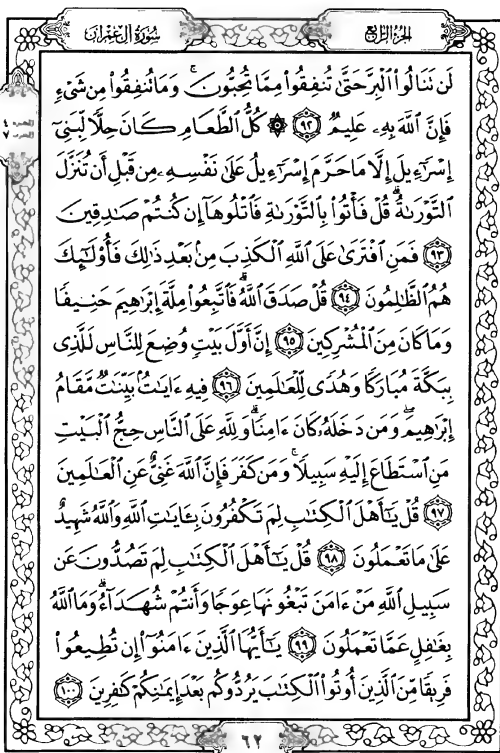 سُورَةُ آلِ عِمْرَان الجُزءُ الرَّابِعُ
لَن تَنَالُوا۟ ٱلْبِرَّ حَتَّىٰ تُنفِقُوا۟ مِمَّا تُحِبُّونَ ۚ وَمَا تُنفِقُوا۟ مِن شَىْءٍ
فَإِنَّ ٱللَّهَ بِهِۦ عَلِيمٌ ٩٢ ۞ كُلُّ ٱلطَّعَامِ كَانَ حِلًّا لِّبَنِىٓ
إِسْرَٰٓءِيلَ إِلَّا مَا حَرَّمَ إِسْرَٰٓءِيلُ عَلَىٰ نَفْسِهِۦ مِن قَبْلِ أَن تُنَزَّلَ
ٱلتَّوْرَىٰةُ ۗ قُلْ فَأْتُوا۟ بِٱلتَّوْرَىٰةِ فَٱتْلُوهَآ إِن كُنتُمْ صَٰدِقِينَ
٩٣ فَمَنِ ٱفْتَرَىٰ عَلَى ٱللَّهِ ٱلْكَذِبَ مِنۢ بَعْدِ ذَٰلِكَ فَأُو۟لَٰٓئِكَ
هُمُ ٱلظَّٰلِمُونَ ٩٤ قُلْ صَدَقَ ٱللَّهُ ۗ فَٱتَّبِعُوا۟ مِلَّةَ إِبْرَٰهِيمَ حَنِيفًا
وَمَا كَانَ مِنَ ٱلْمُشْرِكِينَ ٩٥ إِنَّ أَوَّلَ بَيْتٍ وُضِعَ لِلنَّاسِ لَلَّذِى
بِبَكَّةَ مُبَارَكًا وَهُدًى لِّلْعَٰلَمِينَ ٩٦ فِيهِ ءَايَٰتٌۢ بَيِّنَٰتٌ مَّقَامُ
إِبْرَٰهِيمَ ۖ وَمَن دَخَلَهُۥ كَانَ ءَامِنًا ۗ وَلِلَّهِ عَلَى ٱلنَّاسِ حِجُّ ٱلْبَيْتِ
مَنِ ٱسْتَطَاعَ إِلَيْهِ سَبِيلًا ۚ وَمَن كَفَرَ فَإِنَّ ٱللَّهَ غَنِىٌّ عَنِ ٱلْعَٰلَمِينَ
٩٧ قُلْ يَٰٓأَهْلَ ٱلْكِتَٰبِ لِمَ تَكْفُرُونَ بِـَٔايَٰتِ ٱللَّهِ وَٱللَّهُ شَهِيدٌ
عَلَىٰ مَا تَعْمَلُونَ ٩٨ قُلْ يَٰٓأَهْلَ ٱلْكِتَٰبِ لِمَ تَصُدُّونَ عَن
سَبِيلِ ٱللَّهِ مَنْ ءَامَنَ تَبْغُونَهَا عِوَجًا وَأَنتُمْ شُهَدَآءُ ۗ وَمَا ٱللَّهُ
بِغَٰفِلٍ عَمَّا تَعْمَلُونَ ٩٩ يَٰٓأَيُّهَا ٱلَّذِينَ ءَامَنُوٓا۟ إِن تُطِيعُوا۟
فَرِيقًا مِّنَ ٱلَّذِينَ أُوتُوا۟ ٱلْكِتَٰبَ يَرُدُّوكُم بَعْدَ إِيمَٰنِكُمْ كَٰفِرِينَ ١٠٠
٦٢